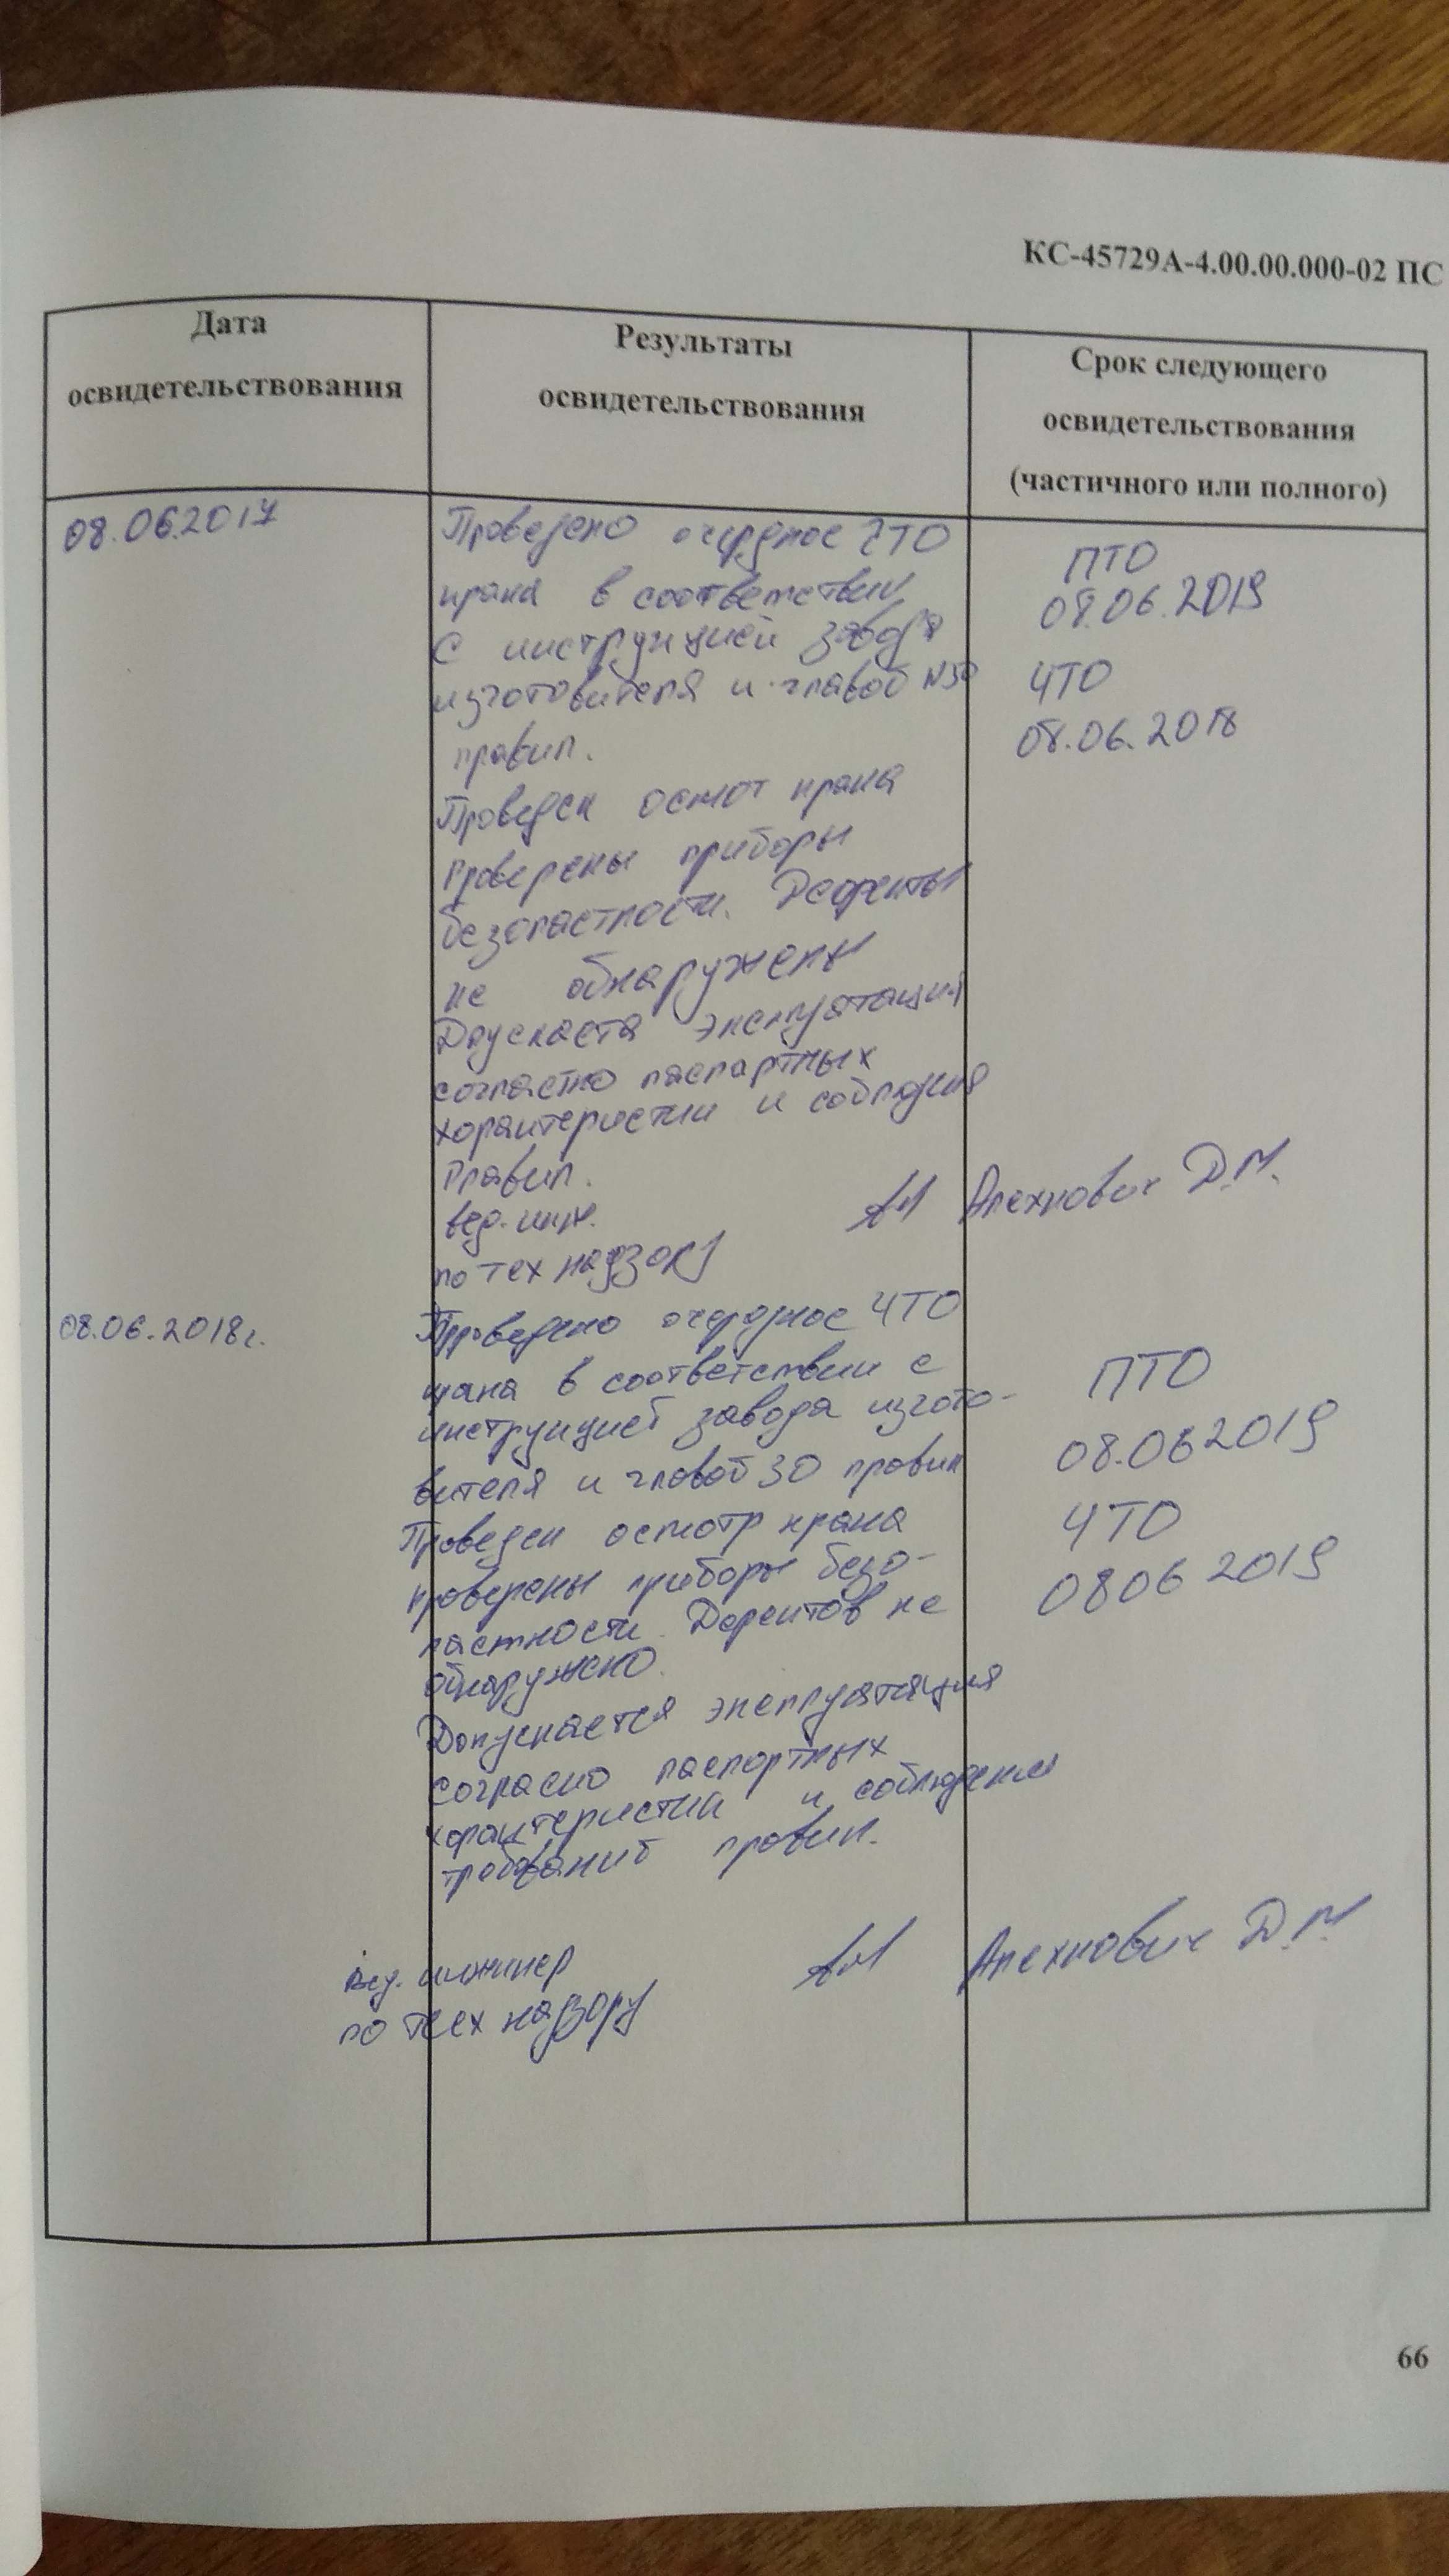 КС-45729А-4.00.00.000-02 ПС
Дата
освидетельствования
Результаты
освидетельствования
Срок следующего
освидетельствования
(частичного или полного)
08.06.2017
Проведено очередное ЧТО
крана в соответствии
с инструкцией завода
изготовителя и главой N30
правил.
Проведен осмот крана
Проверены приборы
безопастности. Дефекты
не обнаружены
Доускаетя эксплуатация
согластно паспартных
характеристик и соблюдения
Правил.
вед. инж.
по тех надзору
ПТО
08.06.2019
ЧТО
08.06.2018
Алехнович Д.М.
08.06.2018г.
Проведено очередное ЧТО
крана в соответствии с
инструкцией завода изгото-
вителя и главой 30 правил
Проведен осмотр крана
проверены приборы безо-
пастности. Дефектов не
обнаружено.
Допускается эксплуатация
согласно паспортных
характеристик и соблюдении
требований правил.
Вед. инжинер
по теех надзору
ПТО
08.06 2019
ЧТО
08 06 2019
Алехнович Д.М.
66